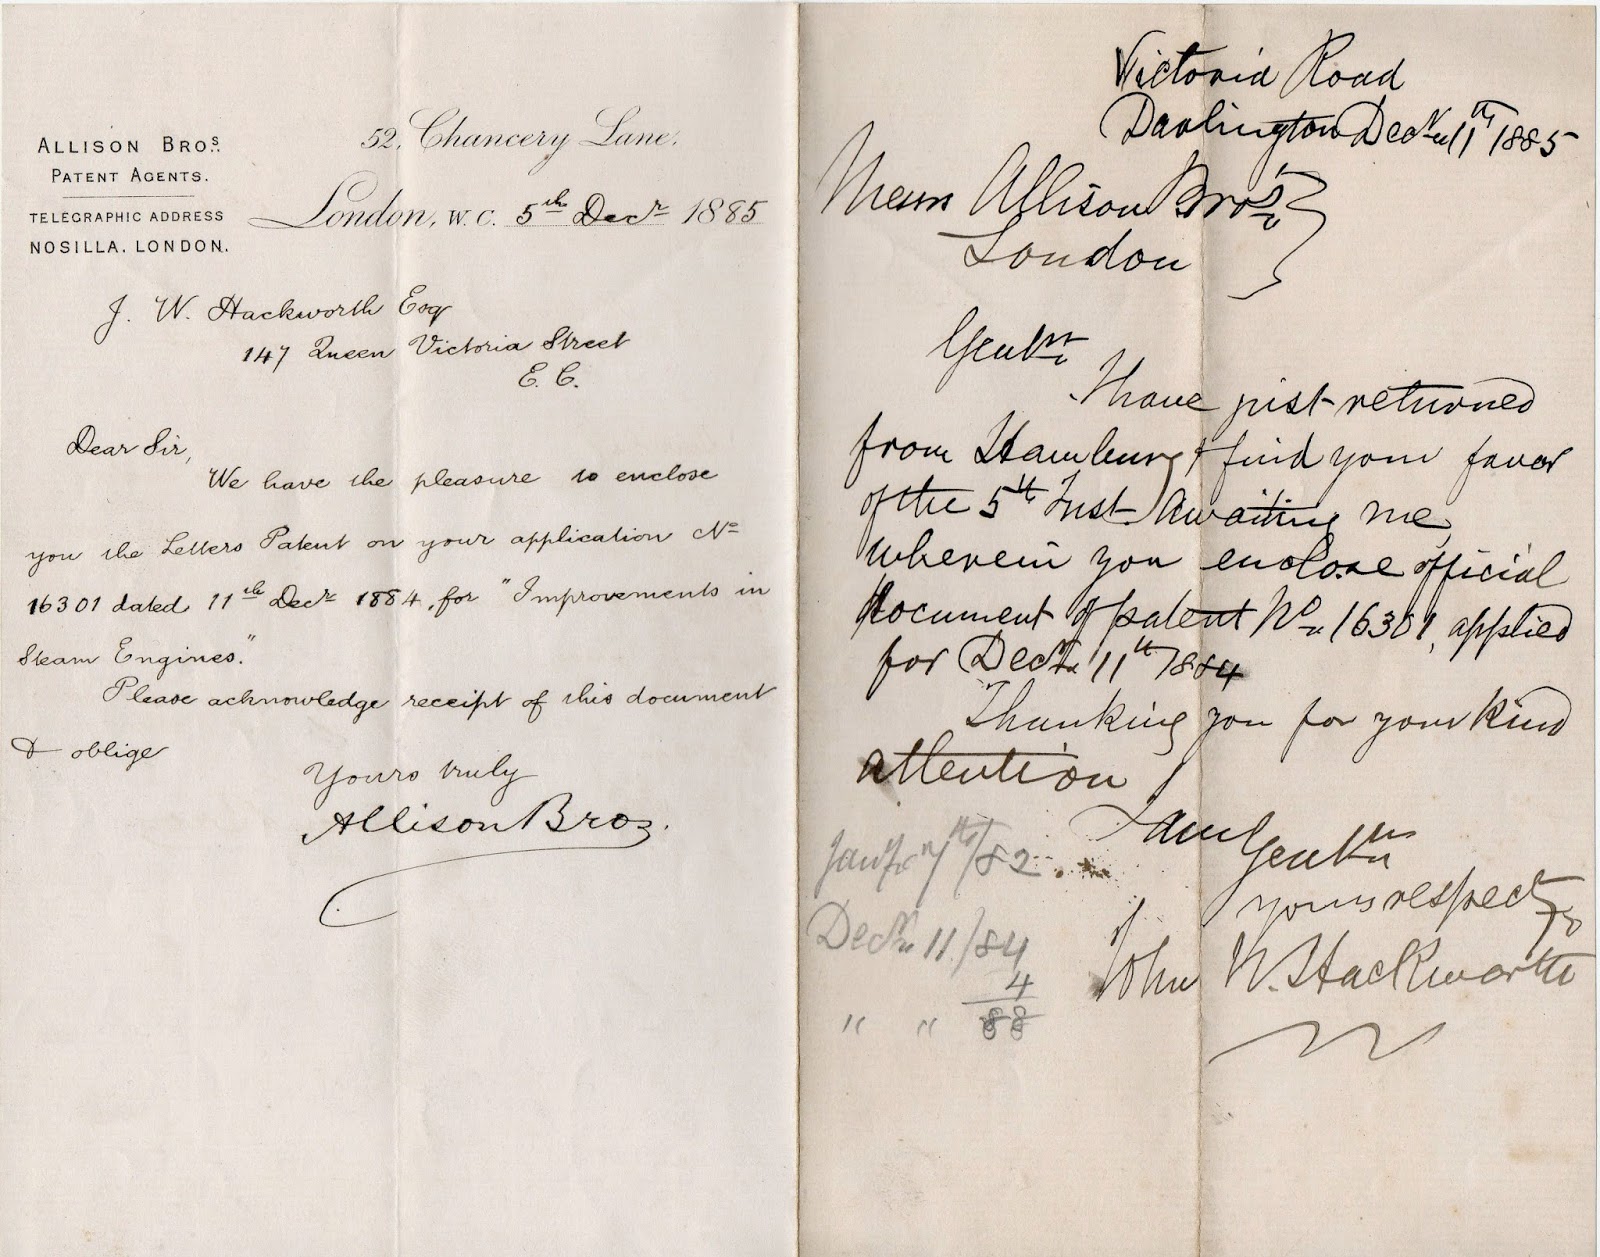 ALLISON BROS.
PATENT AGENTS.
TELEGRAPHIC ADDRESS
NOSILLA. LONDON.
52, Chancery Lane,
London, W.C. 5th Decr 1885
J. W. Hackworth Esq
147 Queen Victoria Street
E. C.
Dear Sir,
We have the pleasure to enclose
you the Letters Patent on your application No
16301 dated 11th Decr 1884, for "Improvements in
Steam Engines."
Please acknowledge receipt of this document
& oblige
Yours truly
Allison Bros.
Victoria Road
Darlington Decr 11th 1885
Messrs Allison Bros
London
Gentn
I have just returned
from Hamburg & find your favor
of the 5th Inst. Awaiting me,
wherein you enclose official
document of patent No 16301, applied
for Decr 11th 1884
Thanking you for your kind
attention
I am Gentn
yours respecty
John W. Hackworth
7th/82
Decr 11/84
4
" " 88